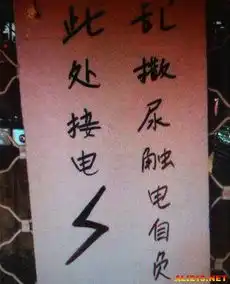 此处接电
乱撒尿触电自负
ALIEYS.NET